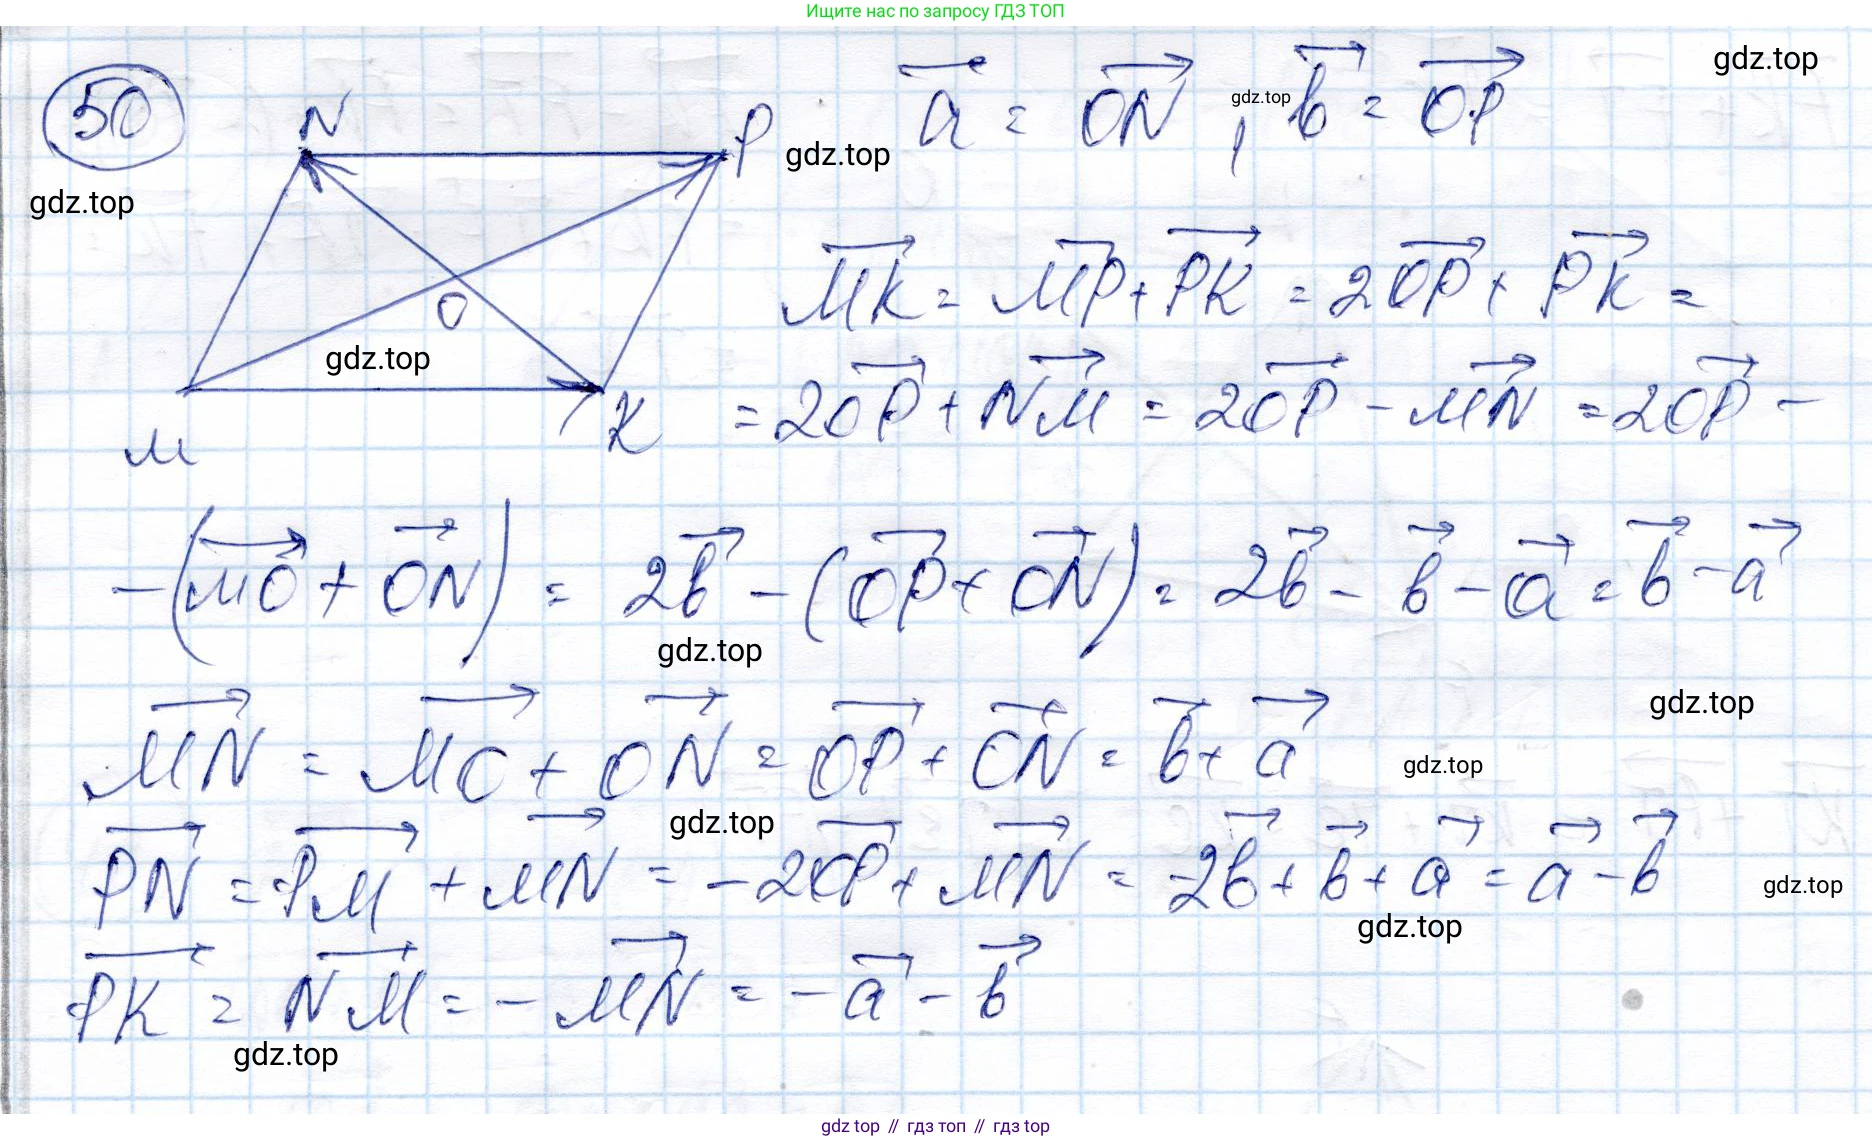 Ищите нас по запросу ГДЗ ТОП
50
gdz.top
N
P
gdz.top
a⃗ = ON⃗ , gdz.top b⃗ = OP⃗
gdz.top
O
gdz.top
M
K
MK⃗ = MP⃗ + PK⃗ = 2OP⃗ + PK⃗ =
= 2OP⃗ + NM⃗ = 2OP⃗ - MN⃗ = 2OP⃗ -
-(MO⃗ + ON⃗) = 2b⃗ - (OP⃗ + ON⃗) = 2b⃗ - b⃗ - a⃗ = b⃗ - a⃗
gdz.top
gdz.top
MN⃗ = MO⃗ + ON⃗ = OP⃗ + ON⃗ = b⃗ + a⃗
gdz.top
gdz.top
PN⃗ = PM⃗ + MN⃗ = -2OP⃗ + MN⃗ = -2b⃗ + b⃗ + a⃗ = a⃗ - b⃗
gdz.top
gdz.top
PK⃗ = NM⃗ = -MN⃗ = -a⃗ - b⃗
gdz.top
gdz top // гдз топ // гдз top